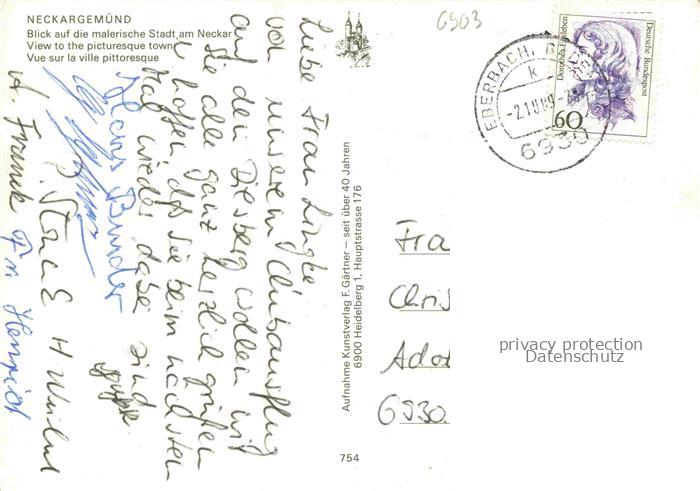 NECKARGEMÜND
Blick auf die malerische Stadt am Neckar
View to the picturesque town
Vue sur la ville pittoresque
6903
EBERBACH, B
k
-2.10.89-
6930
Deutsche Bundespost
Dorothea Erxleben
60
Liebe Frau Lingke
von unserem Clubausflug
auf den Dilsberg wollen wir
Sie alle ganz herzlich grüßen
u. hoffen, daß Sie beim nächsten
Mal wieder dabei sind
Klaus Binder
H. Franck Fr. Henrich
Aufnahme Kunstverlag F. Gärtner – seit über 40 Jahren
6900 Heidelberg 1, Hauptstrasse 176
754
Fra
Chris
Adol
6930
privacy protection
Datenschutz